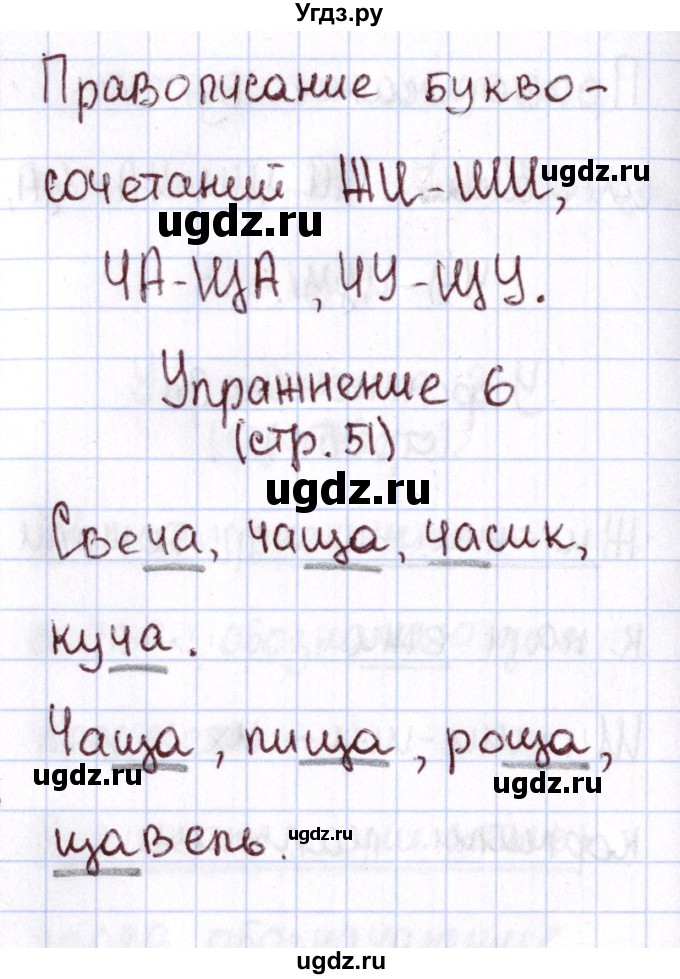 Угдз.ру
Правописание букво-
сочетаний ЖИ-ШИ,
ugdz.ru
ugdz.ru
ЧА-ЩА, ЧУ-ЩУ.
Упражнение 6
(стр. 51)
ugdz.ru
Свеча, чаща, часик,
куча.
Чаща, пища, роща,
ugdz.ru
ugdz.ru
щавель.
ugdz.ru
ugdz.ru